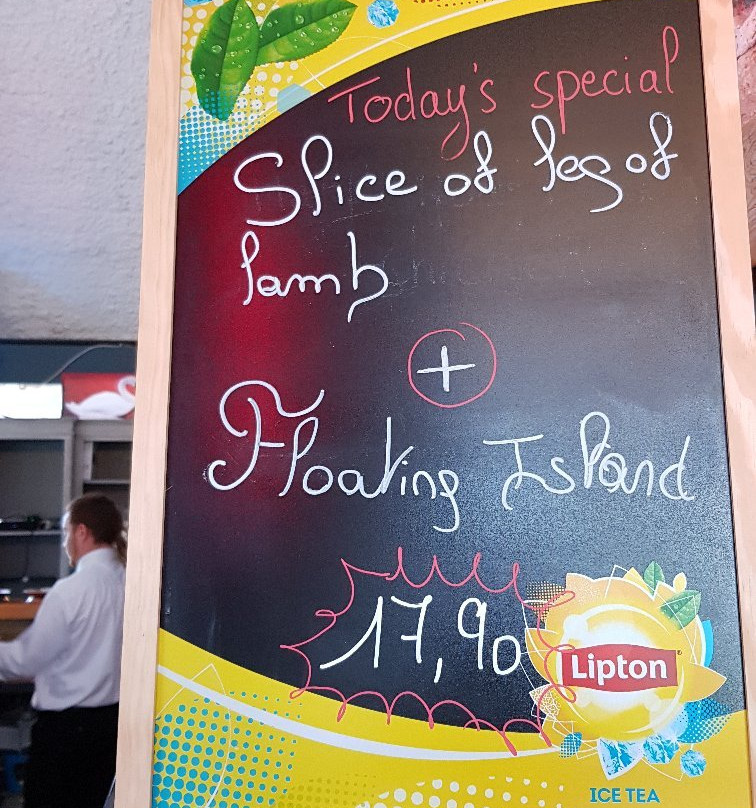 Today's special
Slice of leg of
lamb
+
Floating Island
17,90
Lipton
ICE TEA